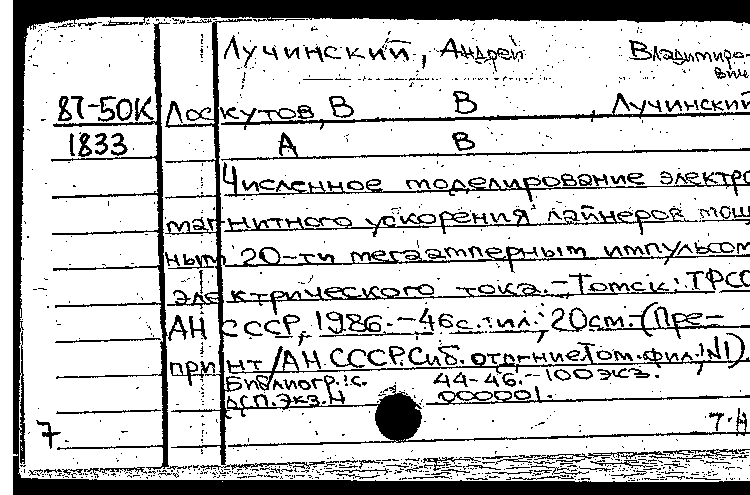 Лучинский, Андрей Владимиро-
вич
87-50К Лоскутов, В В , Лучинский
1833 А В
Численное моделирование электро
магнитного ускорения лайнеров мощ
ным 20-ти мегаамперным импульсом
электрического тока. - Томск: ТФСО
АН СССР, 1986. - 46с. : ил.; 20см. - (Пре-
принт / АН СССР. Сиб. отд-ние Том. фил.; N1).
Библиогр.: с. 44-46. - 100 экз.
ДСП. Экз. N 000001.
7 7.Н